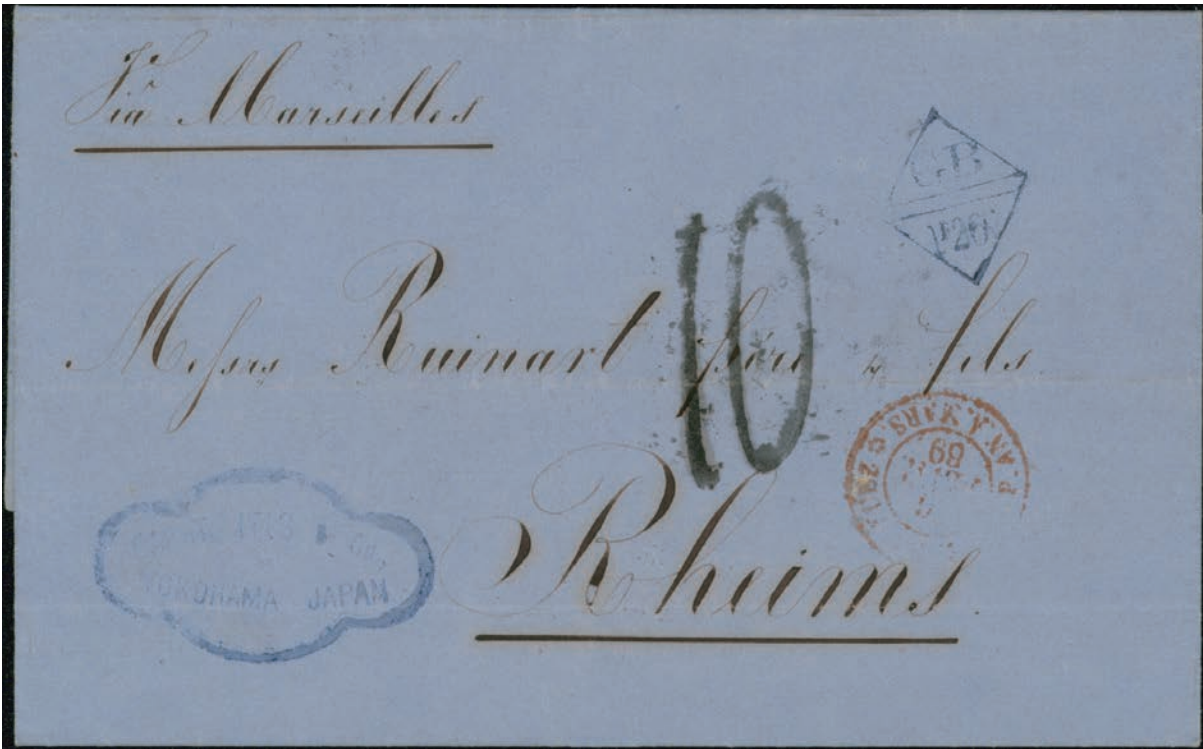 Via Marseilles
GB
1F20
10
Messrs Ruinart père & fils
AN. A. MARS.
69
YOKOHAMA JAPAN
Rheims.